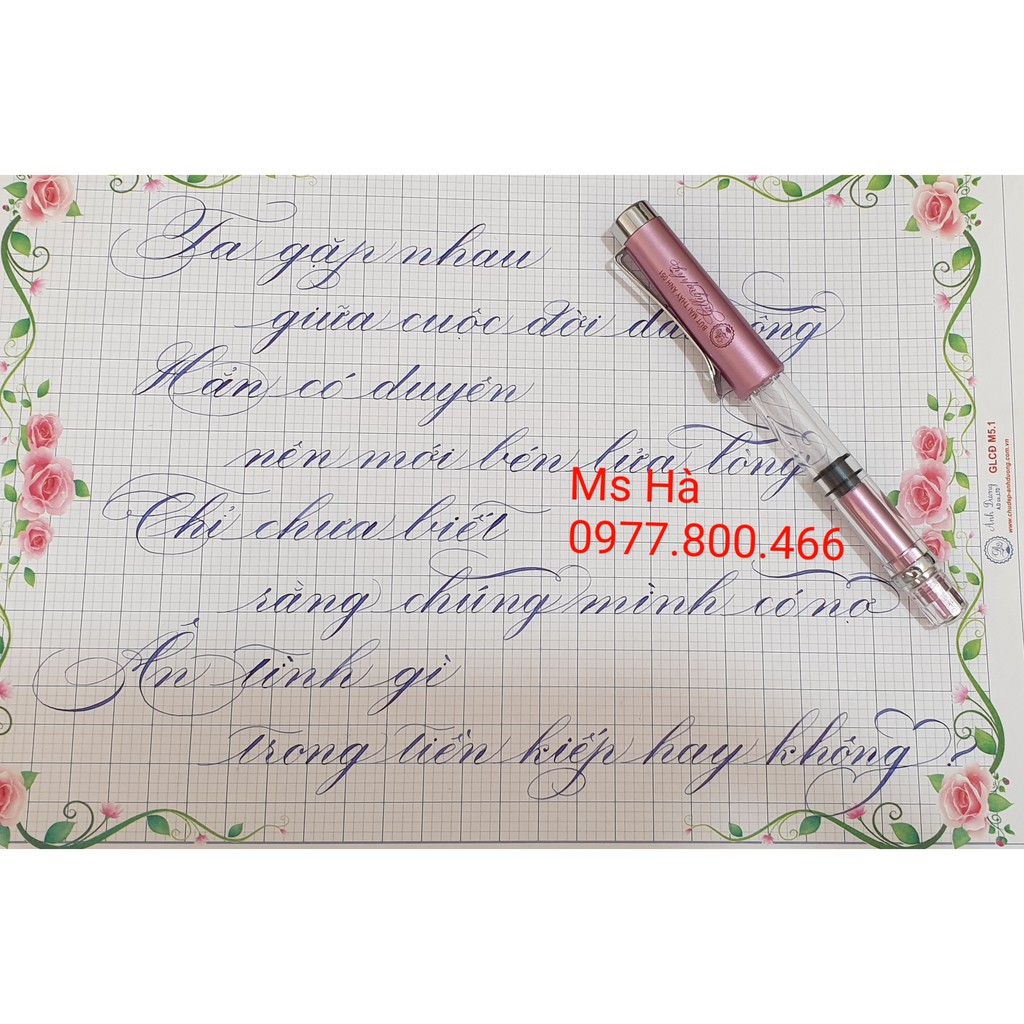 Ta gặp nhau
giữa cuộc đời
Hẳn có duyên
nên mới bén lửa lòng
Ms Hà
Chỉ chưa biết
0977.800.466
rằng chúng mình có nợ
Ân tình gì
trong tiền kiếp hay không?
GLCĐ M5.1
Ánh Dương
www.chudep-anhduong.com.vn